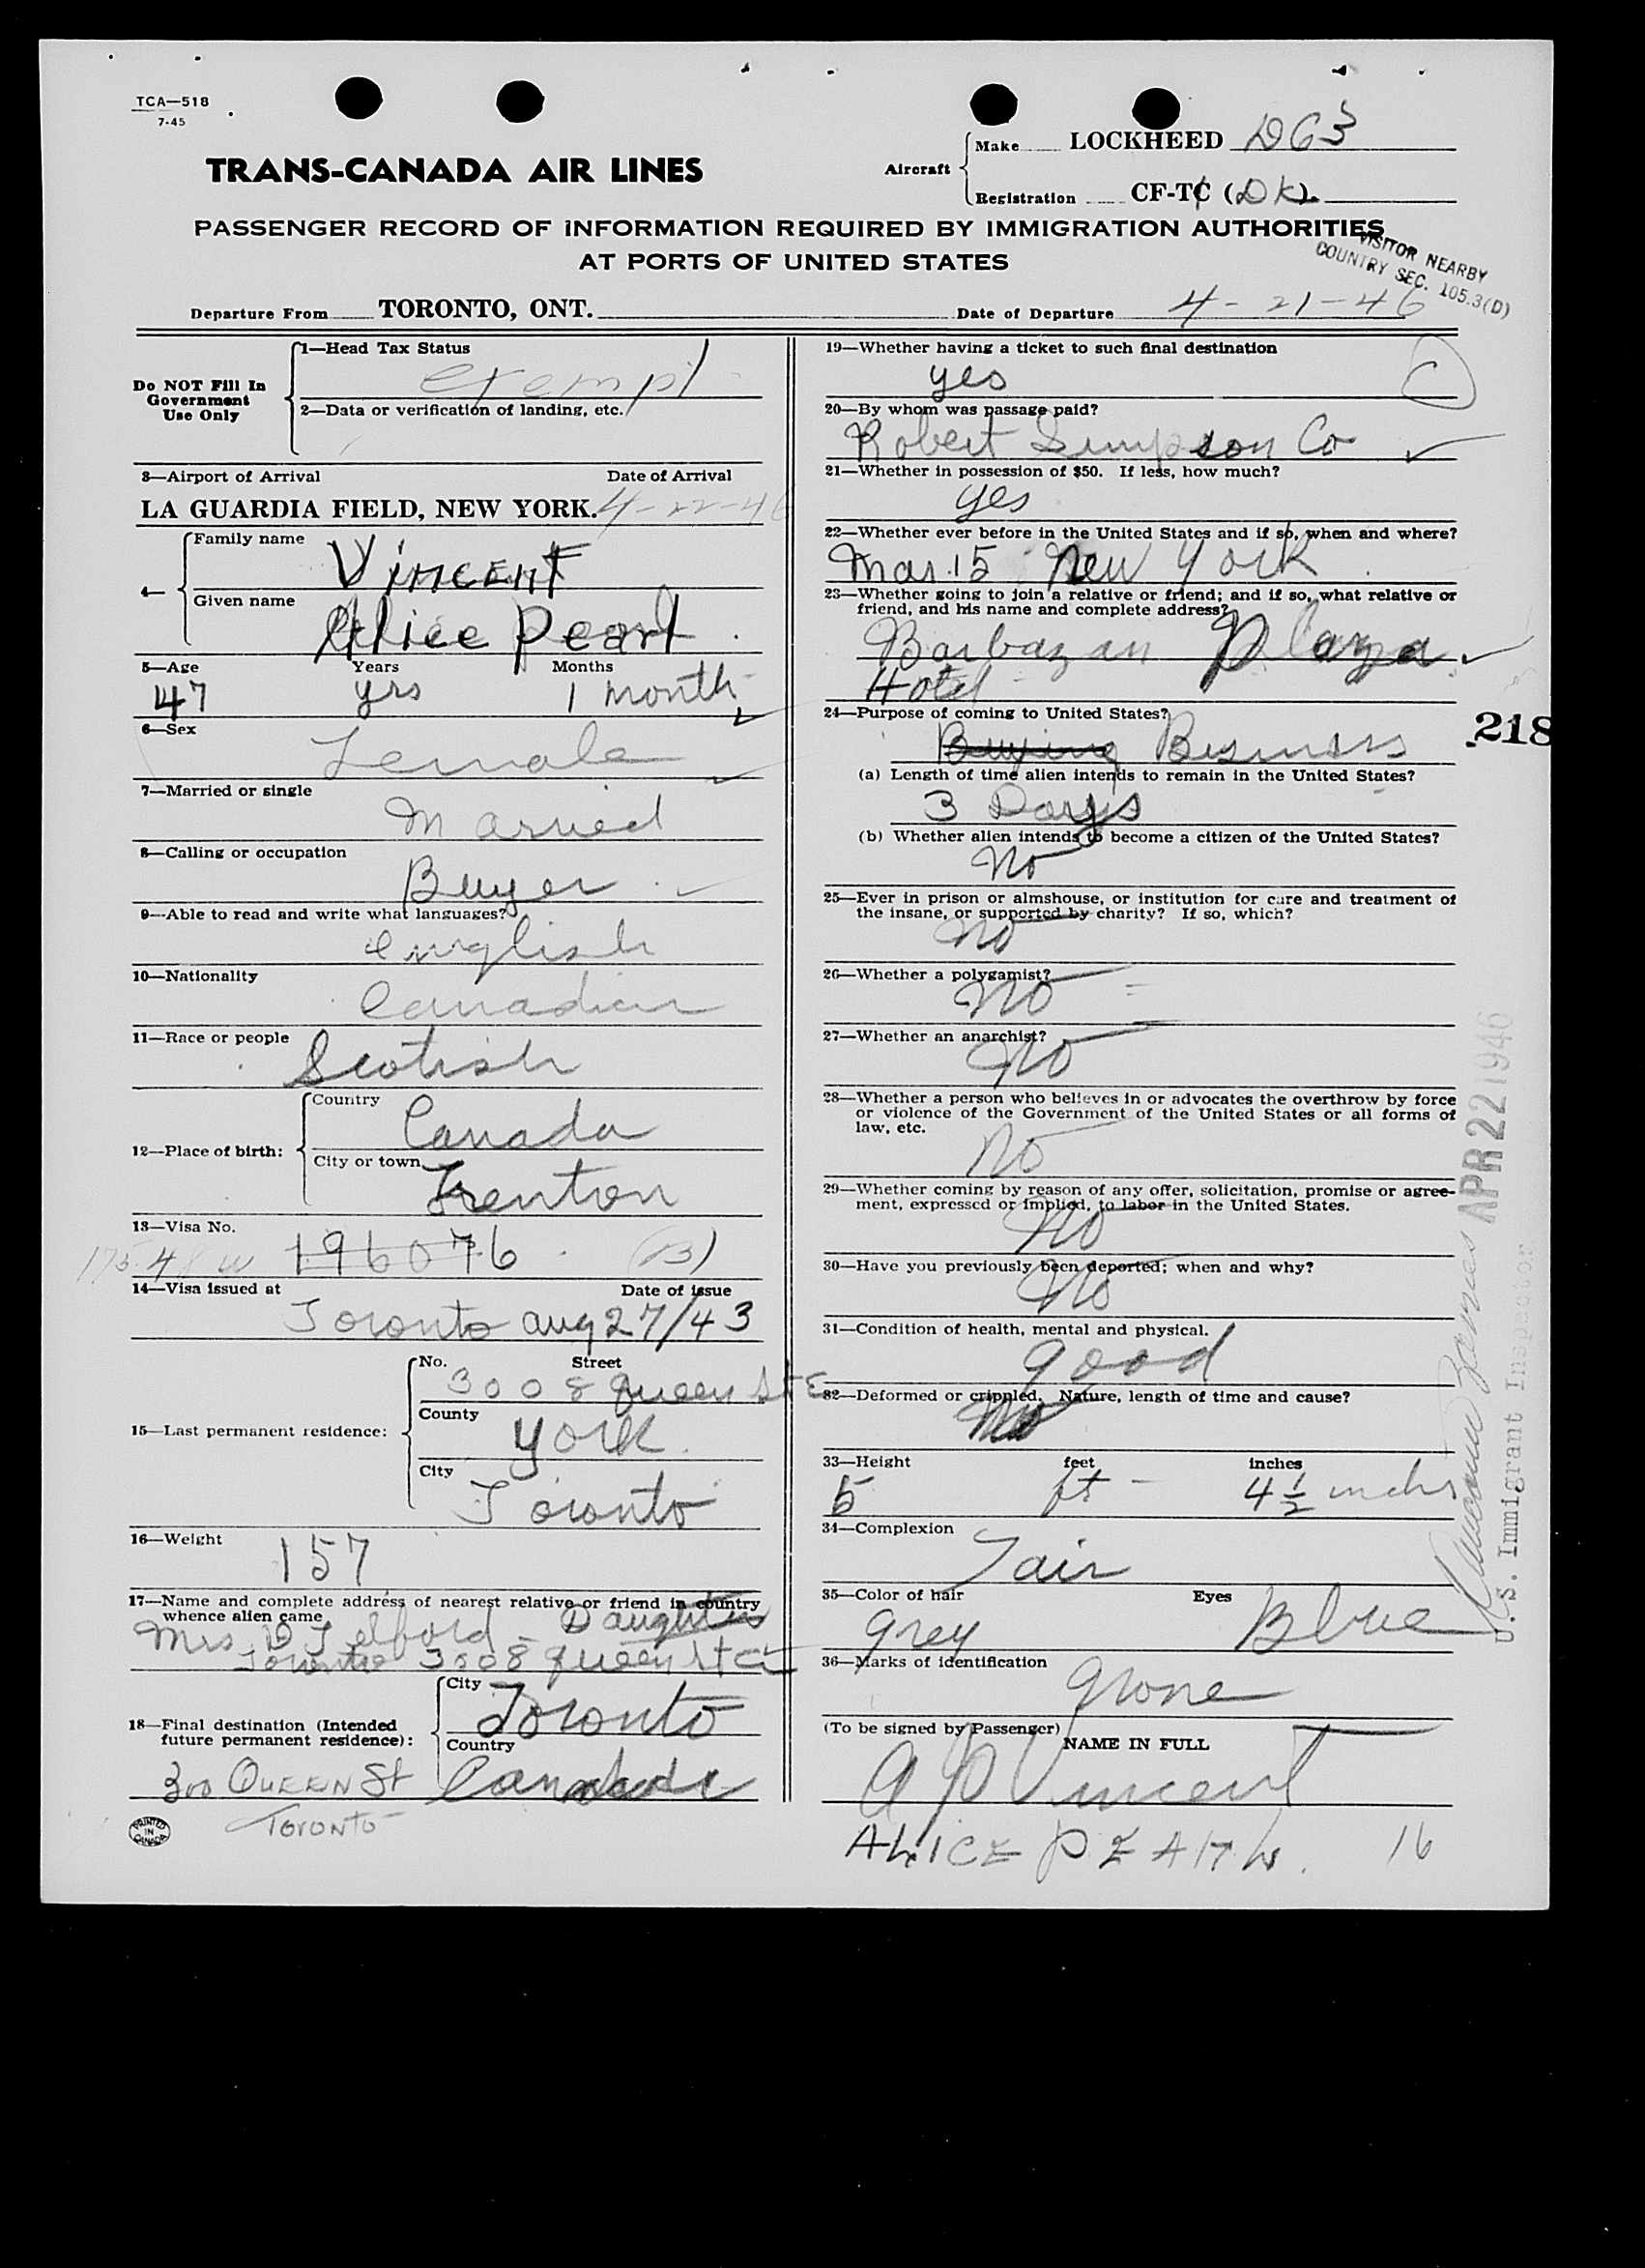 TCA—518
7-45
TRANS-CANADA AIR LINES
Aircraft
Make LOCKHEED DC3
Registration CF-TC (DK).
PASSENGER RECORD OF INFORMATION REQUIRED BY IMMIGRATION AUTHORITIES
AT PORTS OF UNITED STATES
VISITOR NEARBY
COUNTRY SEC. 105.3(D)
Departure From TORONTO, ONT. Date of Departure 4-21-46
Do NOT Fill In
Government
Use Only
1—Head Tax Status
exempt
2—Data or verification of landing, etc.
3—Airport of Arrival Date of Arrival
LA GUARDIA FIELD, NEW YORK. 4-22-46
4— Family name
Vincent
Given name
Alice Pearl
5—Age Years Months
47 yrs 1 month
6—Sex
Female
7—Married or single
Married
8—Calling or occupation
Buyer
9—Able to read and write what languages?
English
10—Nationality
Canadian
11—Race or people
Scotish
12—Place of birth:
Country
Canada
City or town
Trenton
13—Visa No.
196076 (3)
14—Visa issued at Date of issue
Toronto Aug 27/43
15—Last permanent residence:
No. Street
3008 Queen St E
County
York
City
Toronto
16—Weight
157
17—Name and complete address of nearest relative or friend in country
whence alien came
Mrs. D Telford - Daughter
Toronto 3008 Queen St E
18—Final destination (Intended
future permanent residence):
City
Toronto
Country
300 QUEEN St Canada
TORONTO
PRINTED
IN
CANADA
19—Whether having a ticket to such final destination
yes C
20—By whom was passage paid?
Robert Simpson Co
21—Whether in possession of $50. If less, how much?
yes
22—Whether ever before in the United States and if so, when and where?
Mar. 15 New York
23—Whether going to join a relative or friend; and if so, what relative or
friend, and his name and complete address?
Barbazan Plaza
Hotel
24—Purpose of coming to United States?
Buying Business
218
(a) Length of time alien intends to remain in the United States?
3 Days
(b) Whether alien intends to become a citizen of the United States?
No
25—Ever in prison or almshouse, or institution for care and treatment of
the insane, or supported by charity? If so, which?
No
26—Whether a polygamist?
No
27—Whether an anarchist?
No
28—Whether a person who believes in or advocates the overthrow by force
or violence of the Government of the United States or all forms of
law, etc.
No
29—Whether coming by reason of any offer, solicitation, promise or agree-
ment, expressed or implied, to labor in the United States.
No
30—Have you previously been deported; when and why?
No
31—Condition of health, mental and physical.
good
32—Deformed or crippled. Nature, length of time and cause?
No
33—Height feet inches
5 ft - 4 1/2 inches
34—Complexion
Fair
35—Color of hair Eyes
Grey Blue
36—Marks of identification
None
(To be signed by Passenger) NAME IN FULL
A P Vincent
ALICE PEARL. 16
APR 22 1946
U.S. Immigrant Inspector